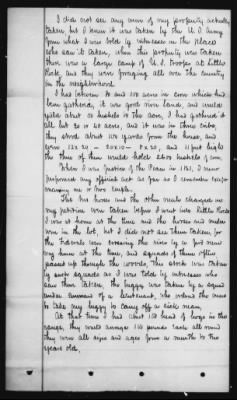 I did not see any more of my property actually
taken, but I know it was taken by the U.S. Army
from what I was told by witnesses in the places
who saw it taken, when this property was taken
there was a large camp of U.S. troops at Little
Rock and they were foraging all over the country
in the neighborhood.
I had between 90 and 100 acres in corn which had
been gathered, it was good river land, and would
yield about 50 bushels to the acre, I had gathered it
all but 30 or 40 acres, and it was in three cribs,
they stood about 100 yards from the house, and
were 12 x 20 — 20x10 — 8 x 20, and 11 feet high
the three of them would hold 2500 bushels of corn.
When I was Justice of the Peace in 1861, I never
performed any official act as far as I remember except
marrying one or two couple.
The two horses and the other mule charged in
my petition were taken before I went into Little Rock
I was at home at the time, and the horses and mules
were in the lot, but I did not see them taken, for
the Federals were crossing the river by a ford near
my house at the time, and squads of them often
passed up through the woods. This stock was taken
by such squads as I was told by witnesses who
saw them taken, the buggy was taken by a squad
under command of a lieutenant, who wanted the mules
to take my buggy to carry off a sick man.
At that time I had about 150 head of hogs in the
range, they would average 150 pounds each all round
they were all sizes and ages from a month to two
years old.